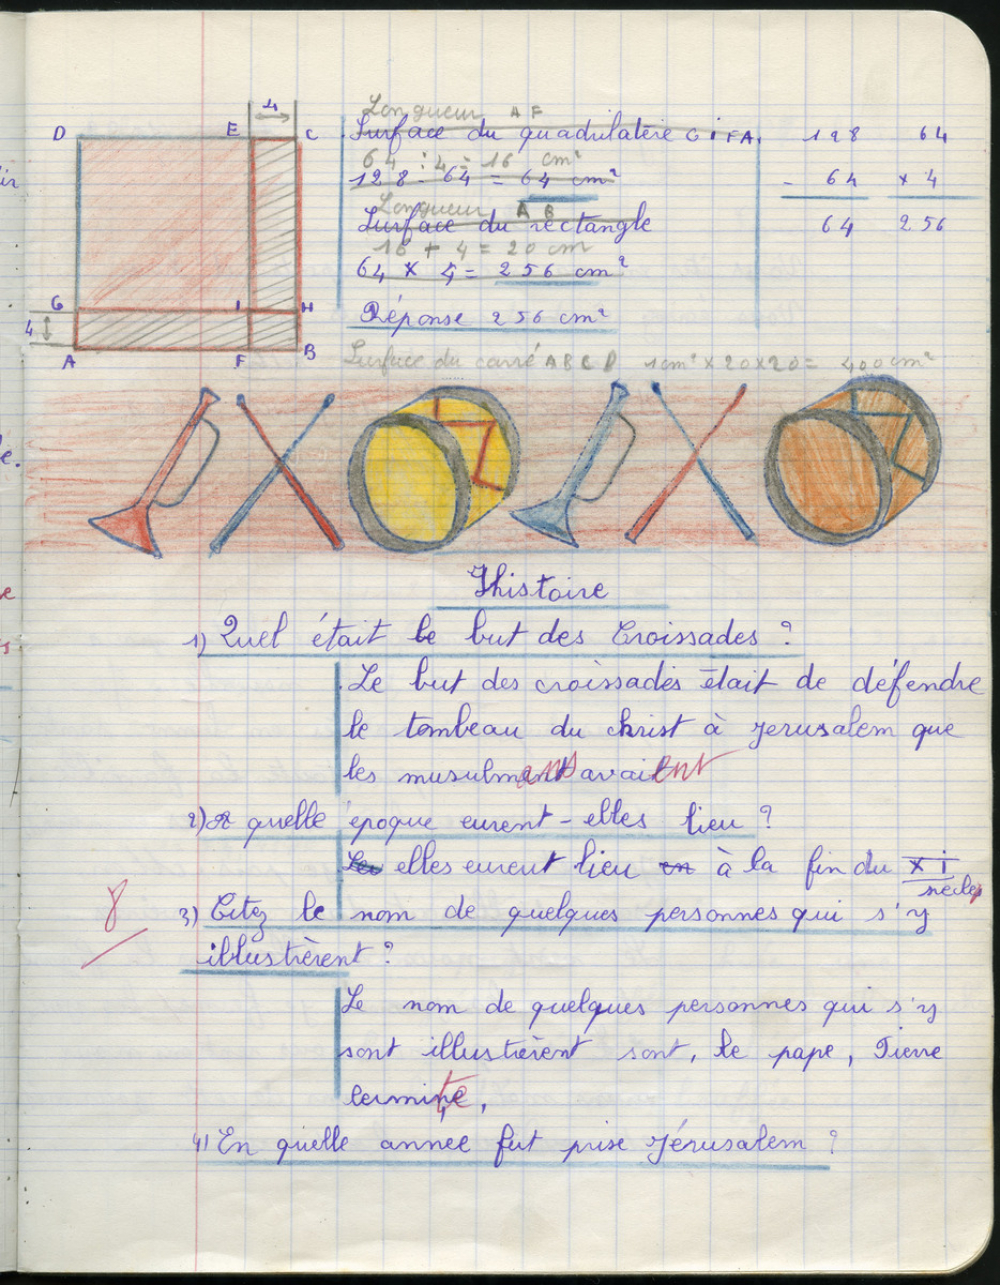 4
D E C
G I H
4
A F B
Longueur AF
Surface du quadrilatère G i FA.
64 : 4 = 16 cm²
128 - 64 = 64 cm²
Longueur AB
Surface du rectangle
16 + 4 = 20 cm
64 x 4 = 256 cm²
Réponse 256 cm²
128 64
- 64 x 4
64 256
Surface du carré ABCD 1cm² x 20 x 20 = 400 cm²
histoire
1) Quel était le but des Croissades ?
Le but des croissades était de défendre
le tombeau du christ à jerusalem que
les musulmans avaient
2) A quelle époque eurent-elles lieu ?
elles eurent lieu en à la fin du XI
siècle
8
3) Citez le nom de quelques personnes qui s'y
illustrèrent ?
Le nom de quelques personnes qui s'y
sont illustrèrent sont, le pape, Pierre
4) En quelle année fut prise Jérusalem ?